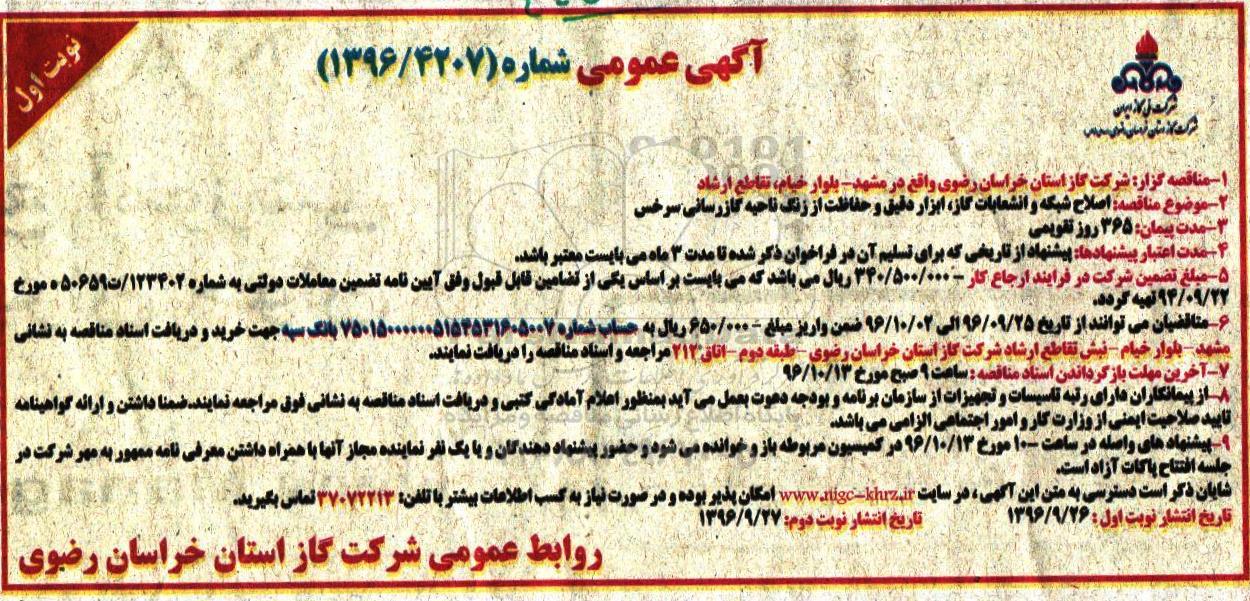 نوبت اول
آگهی عمومی شماره (۱۳۹۶/۴۲۰۷)
شرکت ملی گاز ایران
۱-مناقصه گزار: شرکت گاز استان خراسان رضوی واقع در مشهد- بلوار خیام، تقاطع ارشاد
۲-موضوع مناقصه: اصلاح شبکه و انشعابات گاز، ابزار دقیق و حفاظت از زنگ ناحیه گازرسانی سرخس
۳-مدت پیمان: ۳۶۵ روز تقویمی
۴-مدت اعتبار پیشنهادها: پیشنهاد از تاریخی که برای تسلیم آن در فراخوان ذکر شده تا مدت ۳ ماه می بایست معتبر باشد.
۵-مبلغ تضمین شرکت در فرایند ارجاع کار - ۳۴۰/۵۰۰/۰۰۰ ریال می باشد که می بایست بر اساس یکی از تضامین قابل قبول وفق آیین نامه تضمین معاملات دولتی به شماره ۱۲۳۴۰۲/ت۵۰۶۵۹ ه مورخ
۹۴/۰۹/۲۲ تهیه گردد.
۶-متقاضیان می توانند از تاریخ ۹۶/۰۹/۲۵ الی ۹۶/۱۰/۰۲ ضمن واریز مبلغ - ۶۵۰/۰۰۰ ریال به حساب شماره بانک سپه جهت خرید و دریافت اسناد مناقصه به نشانی
مشهد - بلوار خیام - نبش تقاطع ارشاد شرکت گاز استان خراسان رضوی - طبقه دوم - اتاق ۲۱۲ مراجعه و اسناد مناقصه را دریافت نمایند.
۷-آخرین مهلت بازگرداندن اسناد مناقصه: ساعت ۹ صبح مورخ ۹۶/۱۰/۱۳
۸-از پیمانکاران دارای رتبه تاسیسات و تجهیزات از سازمان برنامه و بودجه دعوت بعمل می آید بمنظور اعلام آمادگی کتبی و دریافت اسناد مناقصه به نشانی فوق مراجعه نمایند.ضمنا داشتن و ارائه گواهینامه
تایید صلاحیت ایمنی از وزارت کار و امور اجتماعی الزامی می باشد.
۹-پیشنهاد های واصله در ساعت ۱۰- مورخ ۹۶/۱۰/۱۳ در کمیسیون مربوطه باز و خوانده می شود و حضور پیشنهاد دهندگان و یا یک نفر نماینده مجاز آنها با همراه داشتن معرفی نامه ممهور به مهر شرکت در
جلسه افتتاح پاکات آزاد است.
شایان ذکر است دسترسی به متن این آگهی، در سایت www.nigc-khrz.ir امکان پذیر بوده و در صورت نیاز به کسب اطلاعات بیشتر با تلفن: ۳۷۰۷۲۲۱۳ تماس بگیرید.
تاریخ انتشار نوبت اول: ۱۳۹۶/۹/۲۶ تاریخ انتشار نوبت دوم: ۱۳۹۶/۹/۲۷
روابط عمومی شرکت گاز استان خراسان رضوی